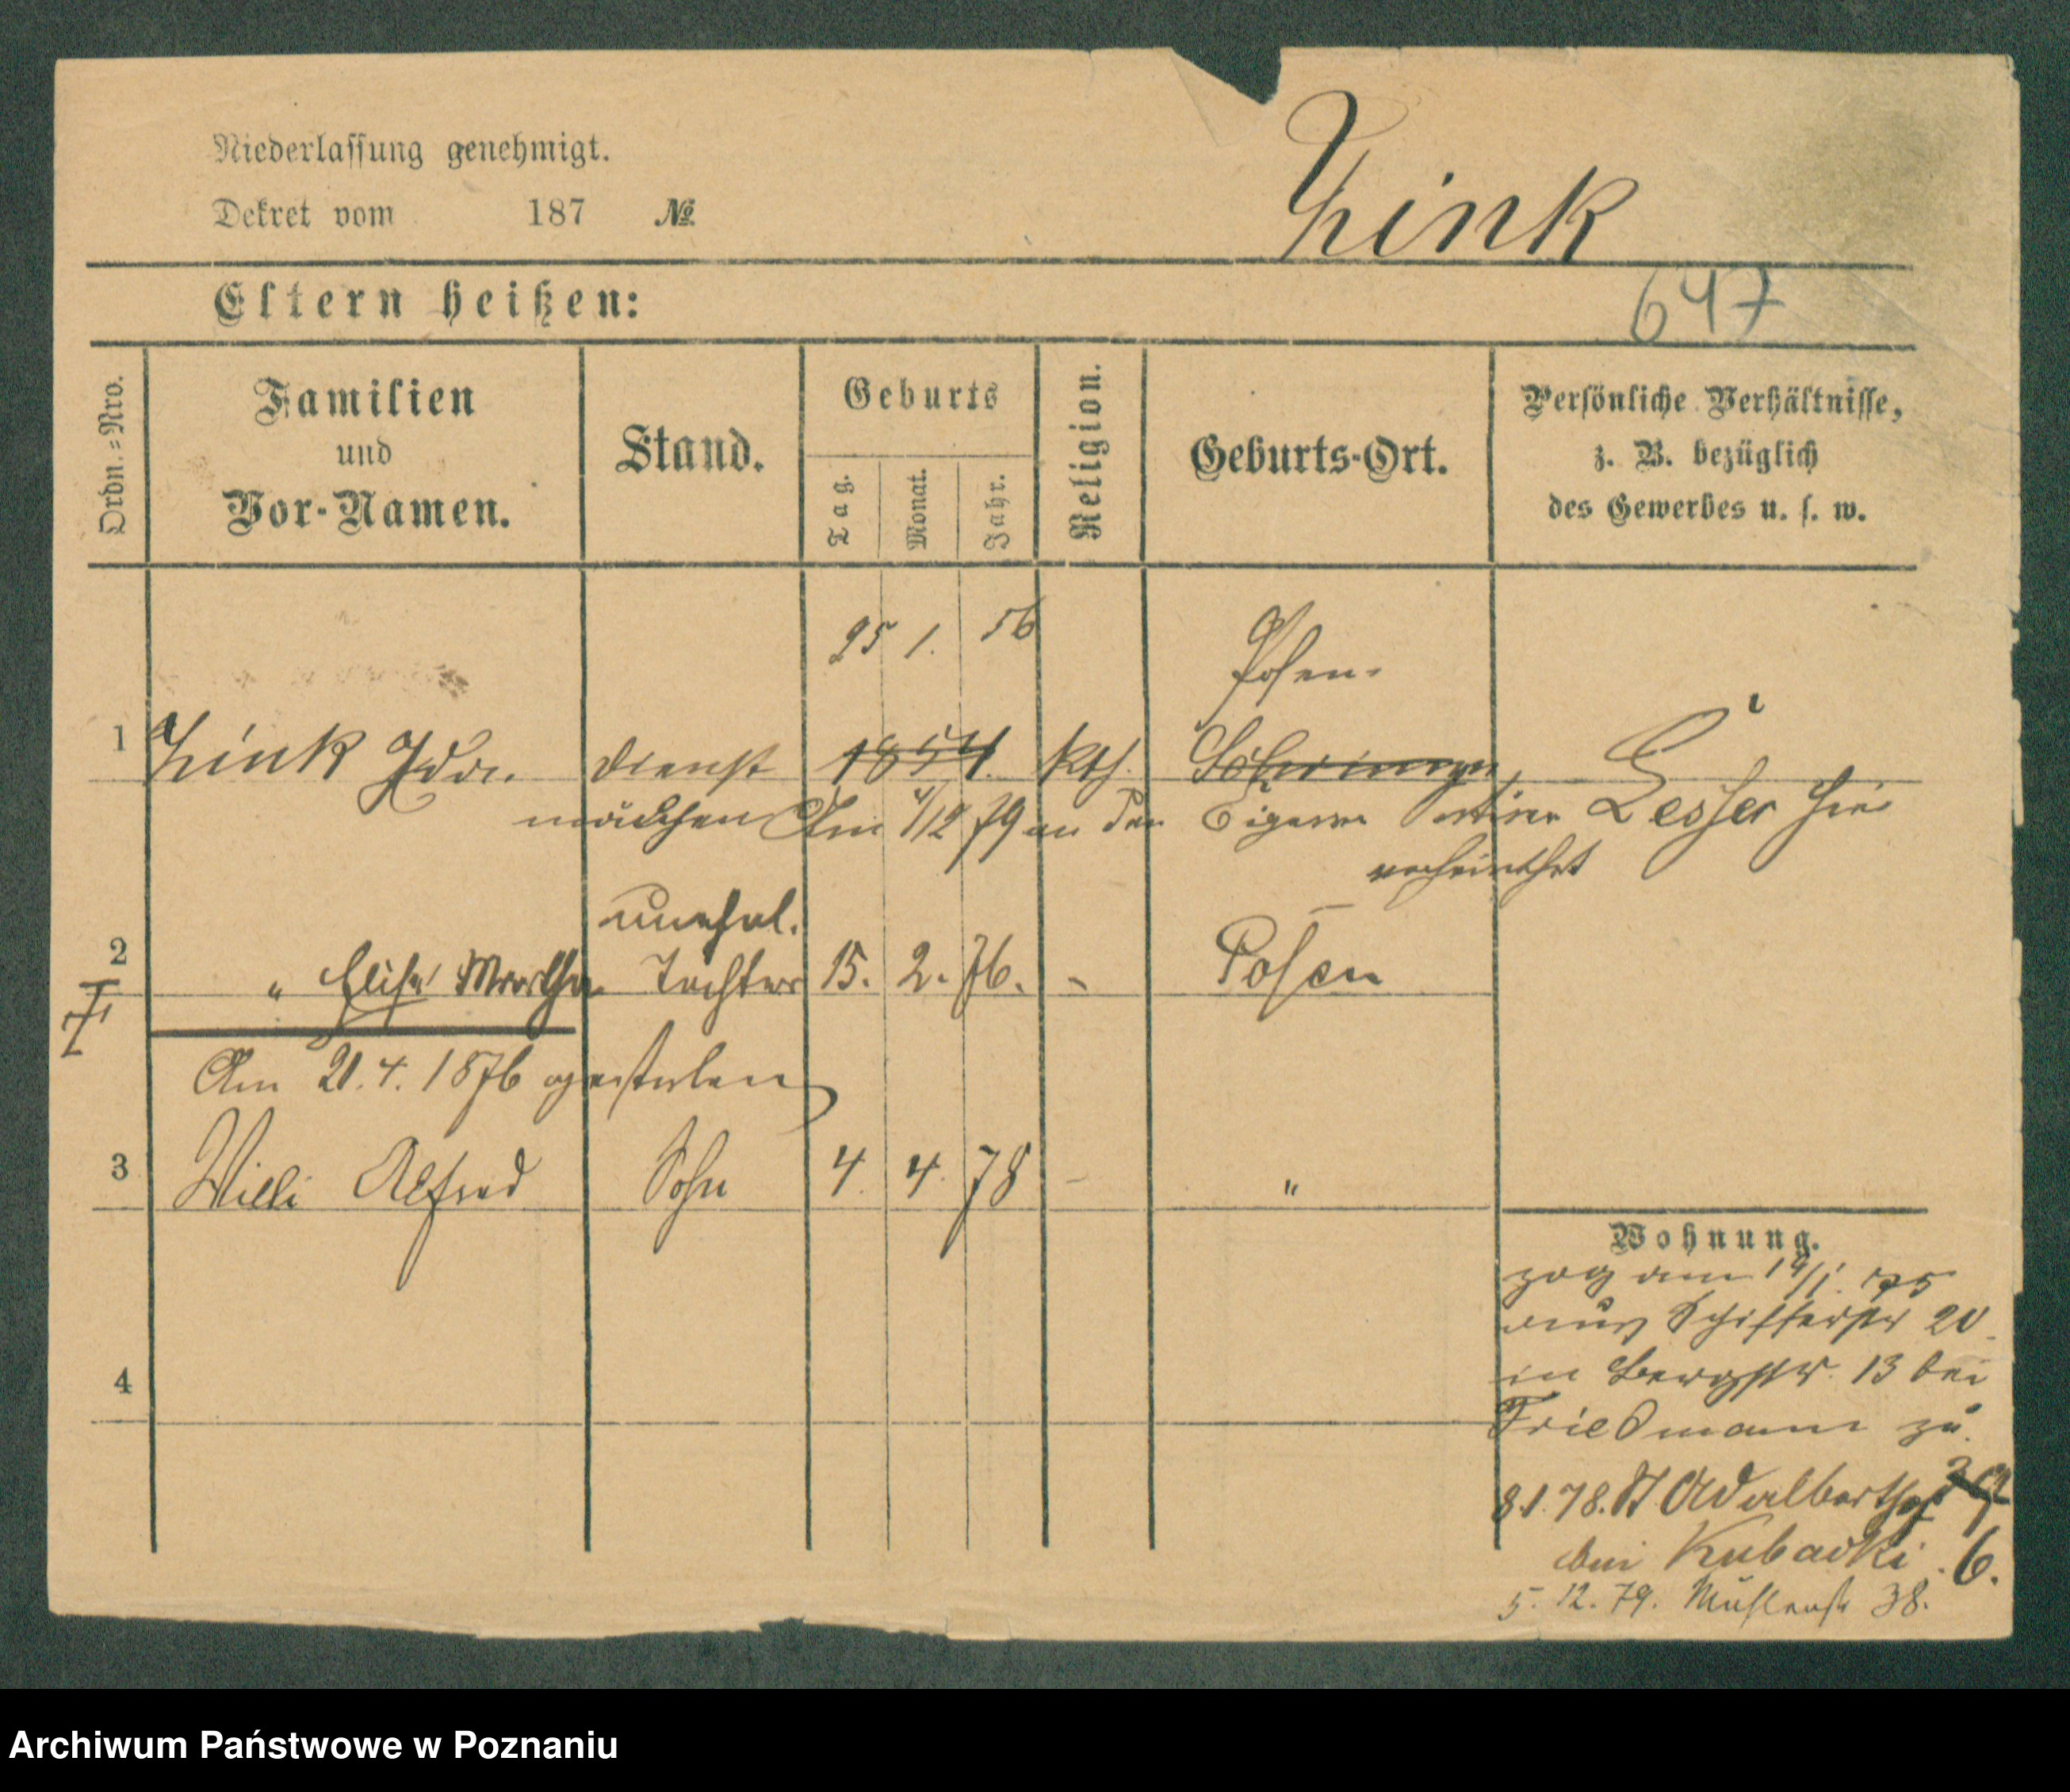 Niederlassung genehmigt.
Zink
Dekret vom 187 №
Eltern heißen:
647
Ordn.=Nro.
Familien
und
Vor-Namen.
Stand.
Geburts
Tag.
Monat.
Jahr.
Religion.
Geburts-Ort.
Persönliche Verhältnisse,
z. B. bezüglich
des Gewerbes u. s. w.
25 1. 56
Posen.
1 Zink Ida. Dienst 1854. kth.
mädchen Am 4/12 79 an den Lesser hier
verheirathet
unehel.
2 " Elise Martha Tochter 15. 2. 76. - Posen
Am 21. 4. 1876 gestorben
3 Willi Alfred Sohn 4. 4. 78 - "
Wohnung.
zog am 19/1. 75
aus Schifferstr 20
in Bergstr. 13 bei
4
Friedmann zu
8.1.78. St Adalbertstr
bei Kubacki. 6.
5. 12. 79. Mühlenstr 38.
Archiwum Państwowe w Poznaniu